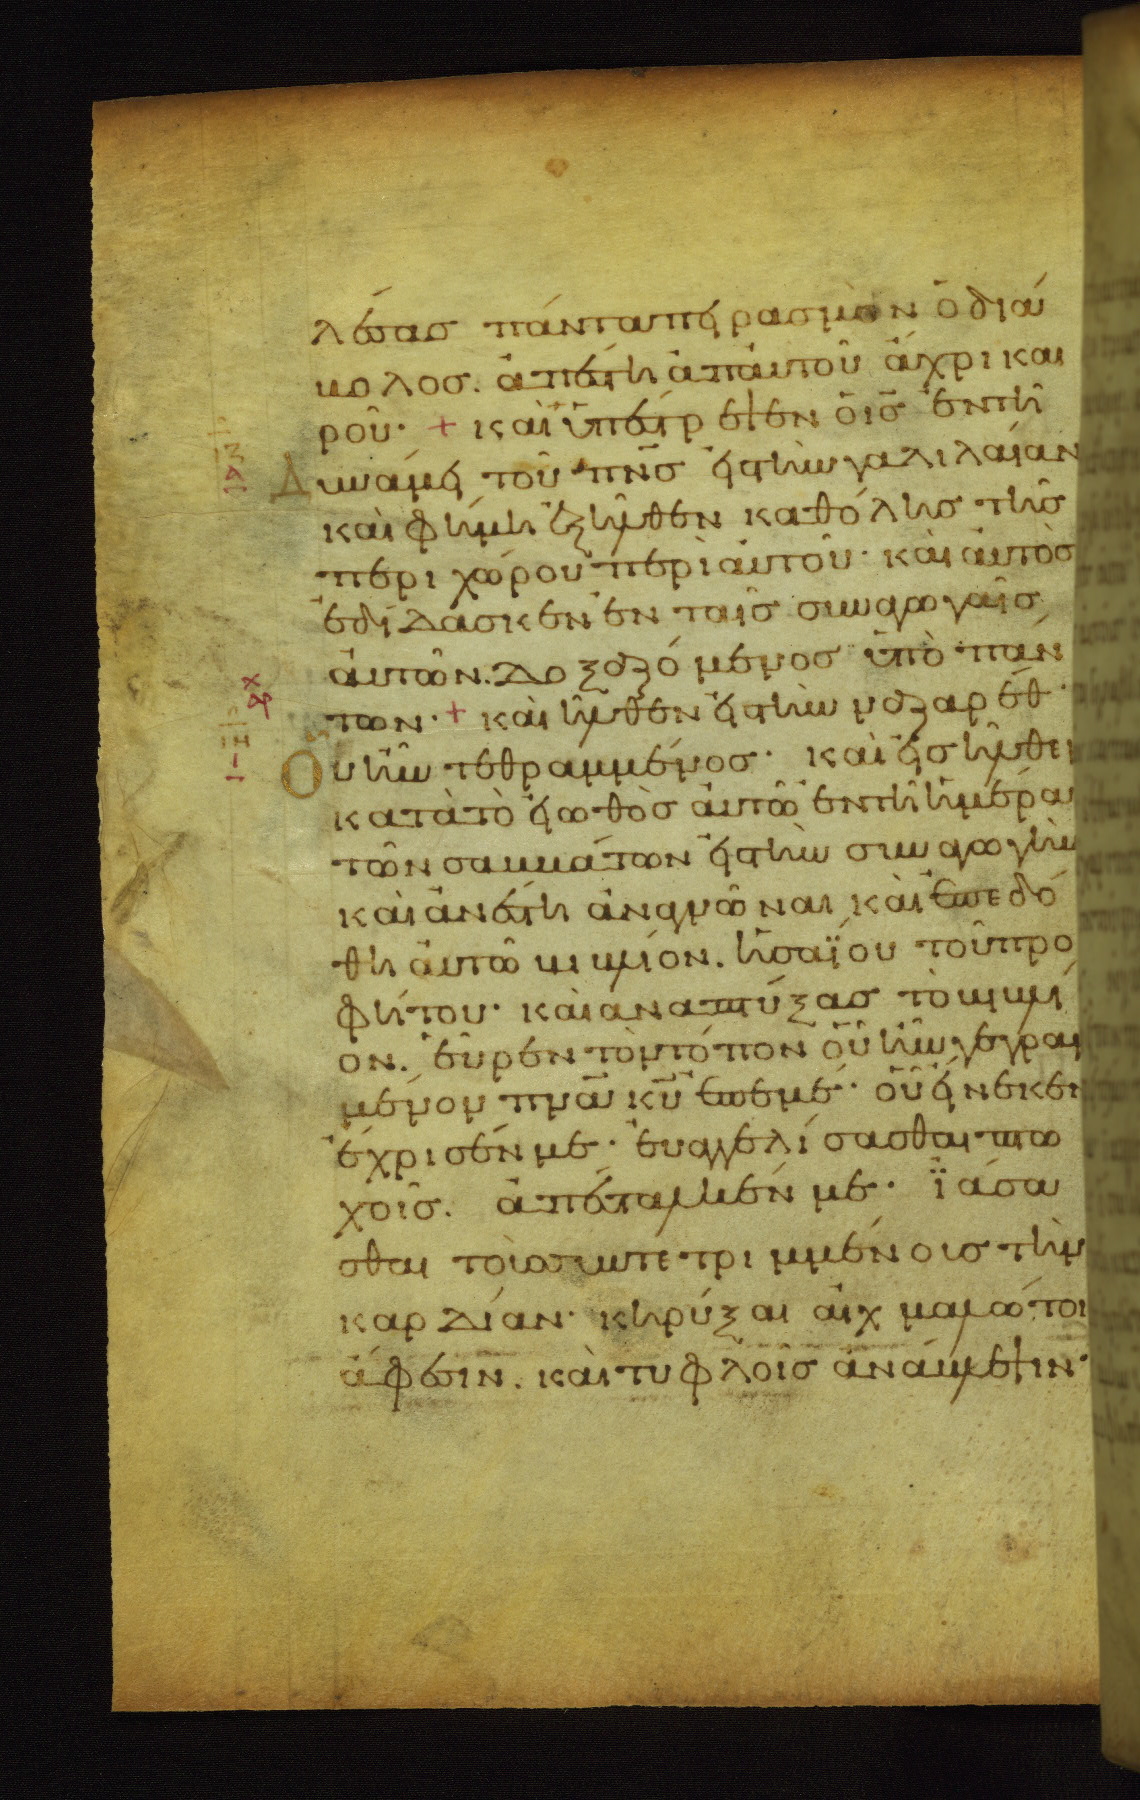 λέσας πάντα πειρασμὸν ὁ διά
βολος. ἀπέστη ἀπ' αὐτοῦ ἄχρι και
ροῦ· + καὶ ὑπέστρεψεν ὁ ις ἐν τῆ
Δυνάμει τοῦ πνς εἰς τὴν γαλιλαίαν
καὶ φήμη ἐξῆλθεν καθόλης τῆς
περιχώρου περὶ αὐτοῦ· καὶ αὐτὸς
ἐδίδασκεν ἐν ταῖς συναγωγαῖς
αὐτῶν. δοξαζόμενος ὑπὸ πάν
των· + καὶ ἦλθεν εἰς τὴν ναζαρέθ·
Οὗ ἦν τεθραμμένος· καὶ εἰσῆλθεν
κατὰ τὸ εἰωθὸς αὐτῶ ἐν τῆ ἡμέρα
τῶν σαββάτων εἰς τὴν συναγωγὴν
καὶ ἀνέστη ἀναγνῶναι καὶ ἐπεδό
θη αὐτῶ βιβλίον. ἡσαΐου τοῦ προ
φήτου· καὶ αναπτύξας τὸ βιβλί
ον. εὗρεν τὸν τόπον οὗ ἦν γεγραμ
μένον πνα κυ ἐπ' εμέ· οὗ εἵνεκεν
ἔχρισέν με· εὐαγγελίσασθαι πτω
χοῖς. ἀπέσταλκέν με· ϊάσα
σθαι τοὺς συντετριμμένοις τὴν
καρδίαν· κηρύξαι αἰχμαλώτοι
ἄφεσιν. καὶ τυφλοῖς ἀνάβλεψιν·